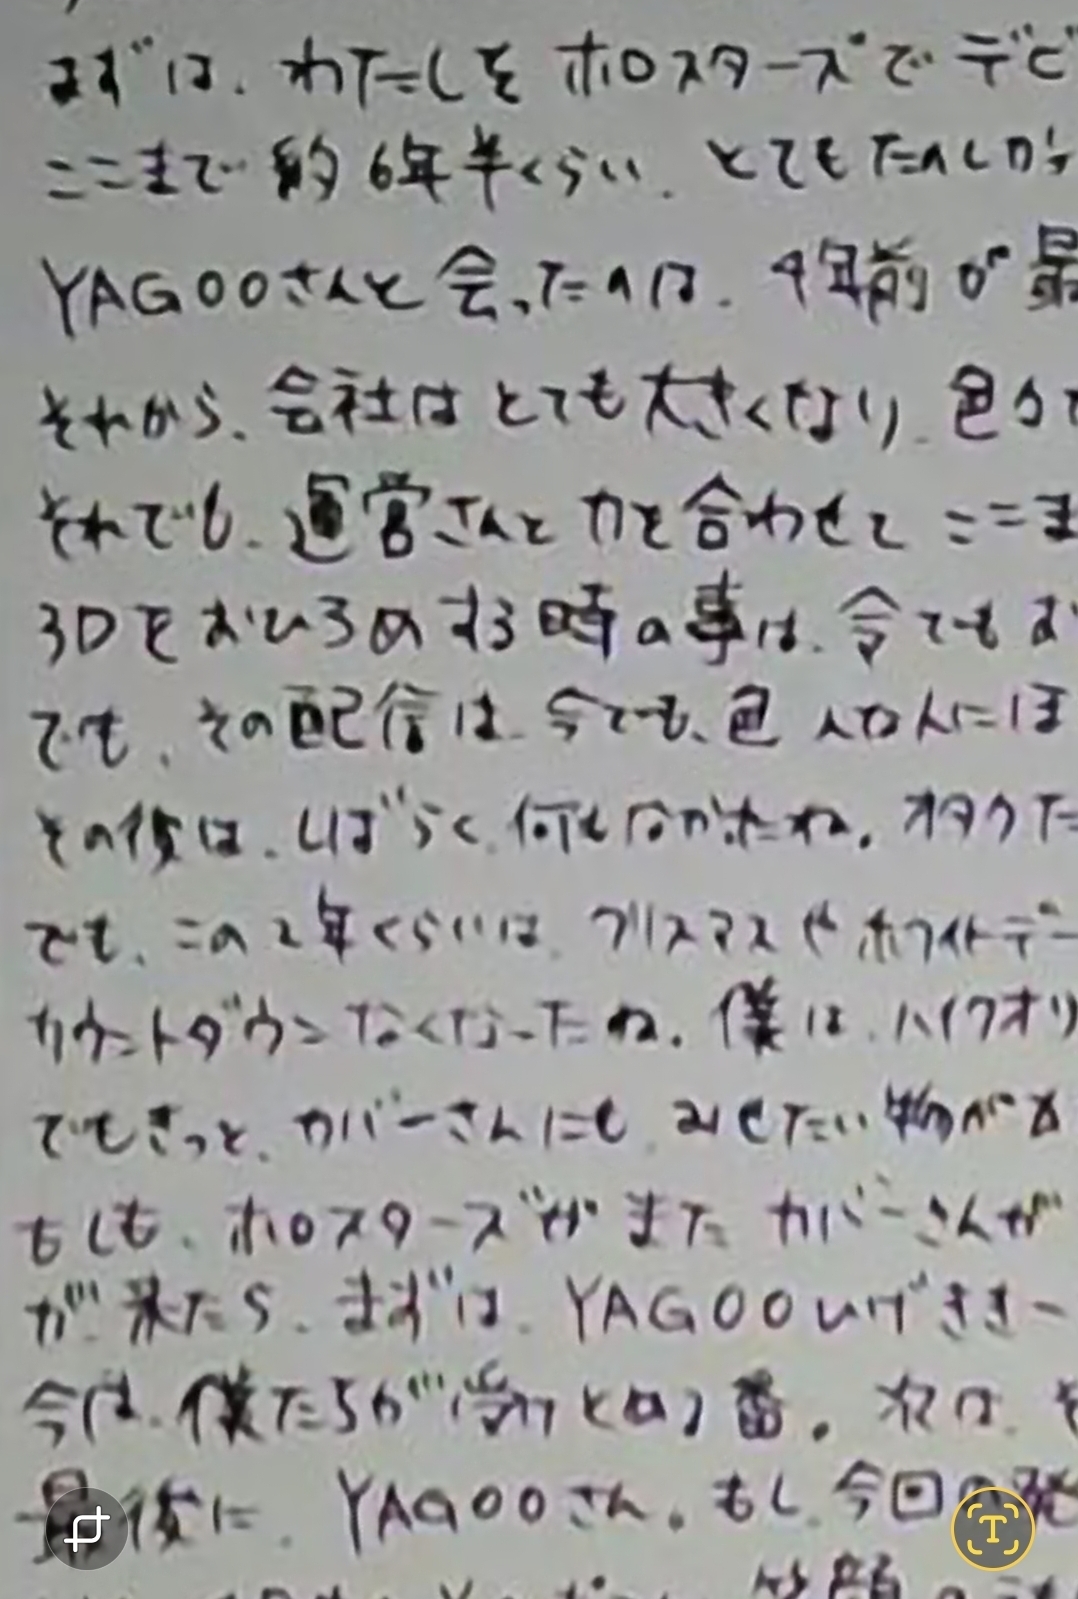 まずは、わたしをホロスターズでデビ
ここまで約6年半くらい、とてもたのしか
YAGOOさんと会ったのは、4年前が最
それから、会社はとても大きくなり、色々
それでも、運営さんと力を合わせてここま
3Dをおひろめする時の事は、今でもお
でも、その配信は、今でも、色んな人にほ
その後は、しばらく、何もなかったね。オタクた
でも、この2年くらいは、クリスマスやホワイトデー
カウントダウンなくなったね。僕は、ハイクオリ
でもきっと、カバーさんにも、みせたい物があ
もしも、ホロスターズがまたカバーさんが
が来たら、まずは、YAGOO
今は、僕たちが 番。 そ
最後に、YAGOOさん。もし、今回の発
笑顔